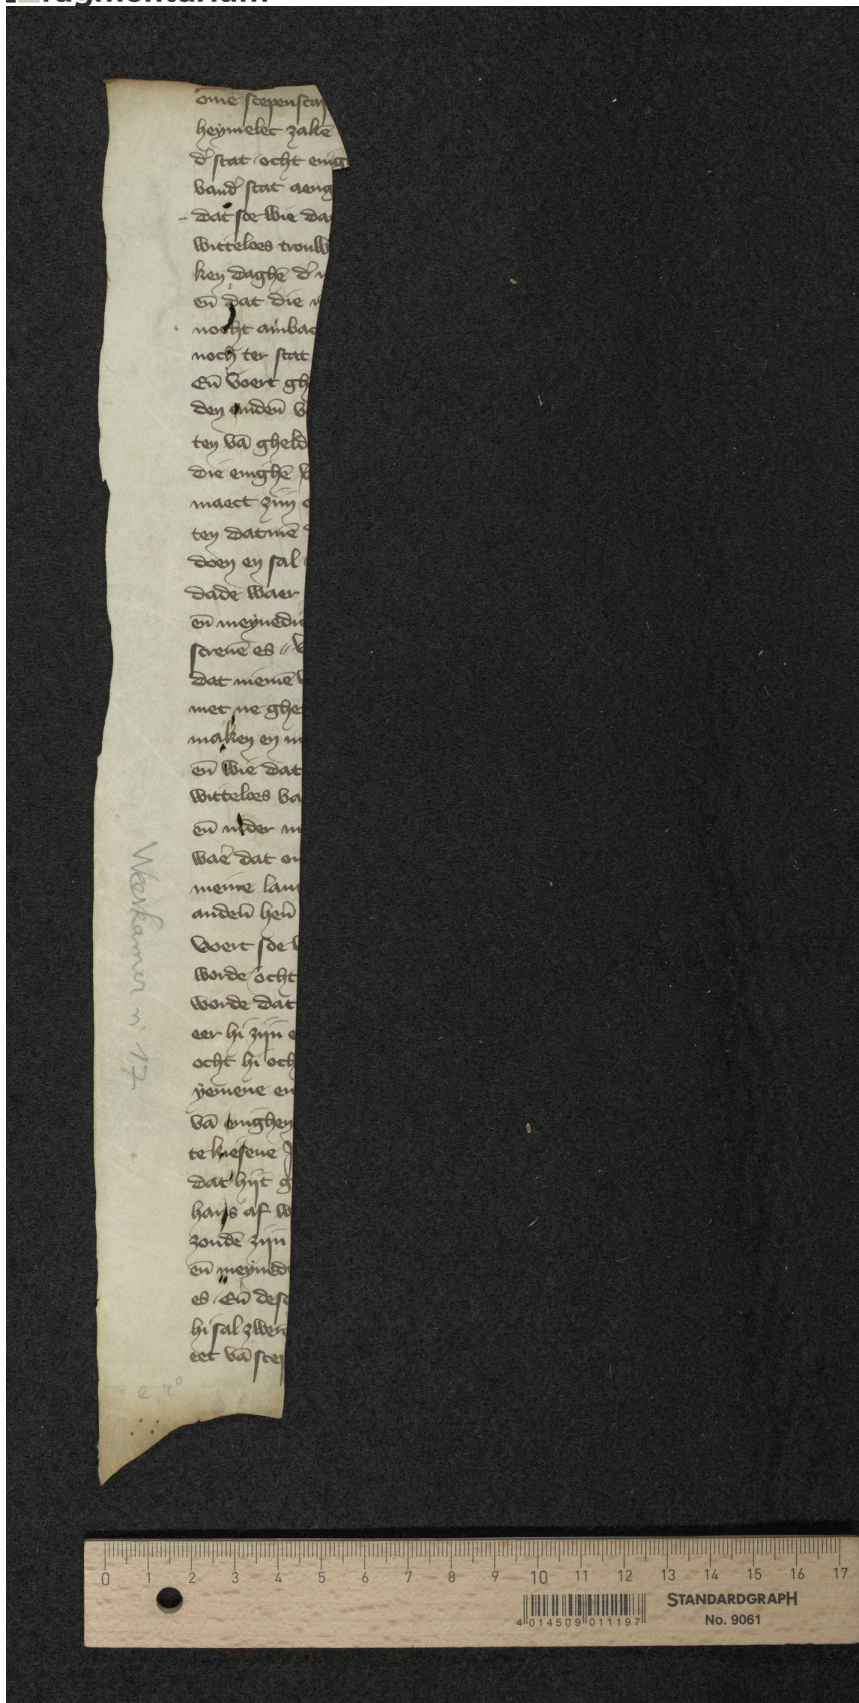 ome scepenscap
heymelec zakē
d' stat ocht enig
vand' stat aeng
dat soe wie da
witteloes trouw
ken daghē d'
eñ dat die
nocht ambac
noch ter stat
Eñ voert gh
den
ten vā gheld
die enighē
maect zijn
ten datmē
doen en sal
dade waer
eñ meynedi
screuē es
dat niemē
met ne ghe
maken en
eñ wie dat
witteloes va
eñ
wae' dat en
meine lan
hen
voert soe
worde ocht
worde dat
eer hi zijn
ocht hi och
yemene en
vā enighen
te kiesene
dat hijt g
hans af w
zondē zijn
eñ meyned
es Eñ dese
hi sal zwer
eet vā scep
Weeskamer nr 17
0 1 2 3 4 5 6 7 8 9 10 11 12 13 14 15 16 17
4 014509 011197
STANDARDGRAPH
No. 9061